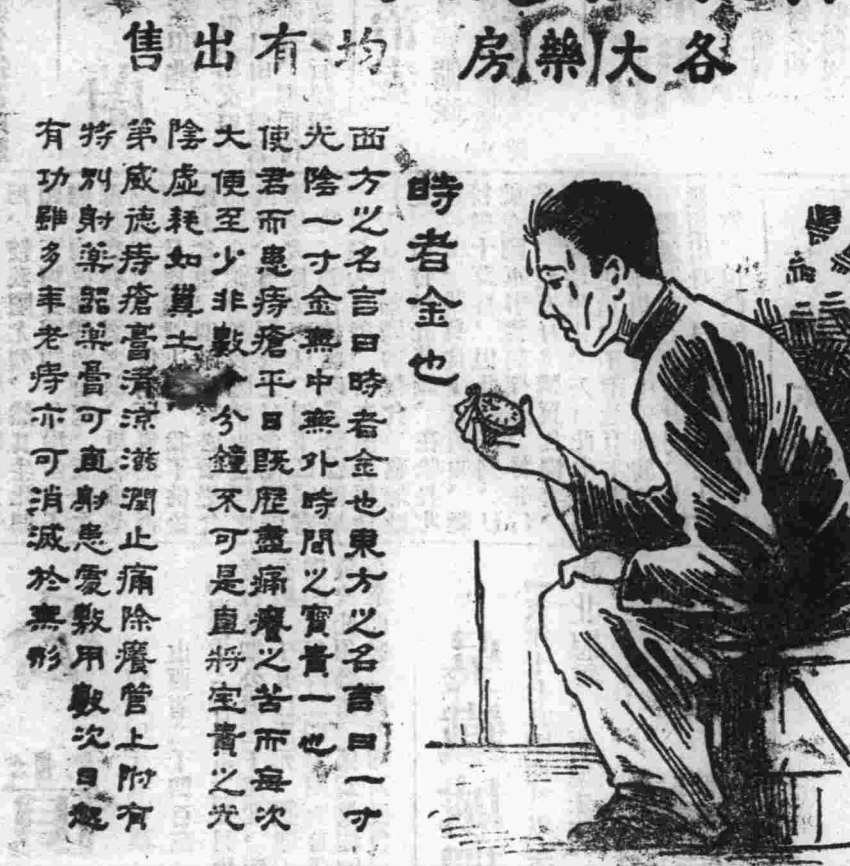 各大藥房 均有出售
時者金也
西方之名言曰時者金也東方之名言曰一寸
光陰一寸金無中無外時間之寶貴一也
使君而患痔瘡平日既歷盡痛癢之苦而每次
大便至少非數十分鐘不可是直將宝貴之光
陰虛耗如糞土
第威德痔瘡膏清涼滋潤止痛除癢管上附有
特別射藥器藥膏可直射患處敷用數次日起
有功雖多年老痔亦可消滅於無形